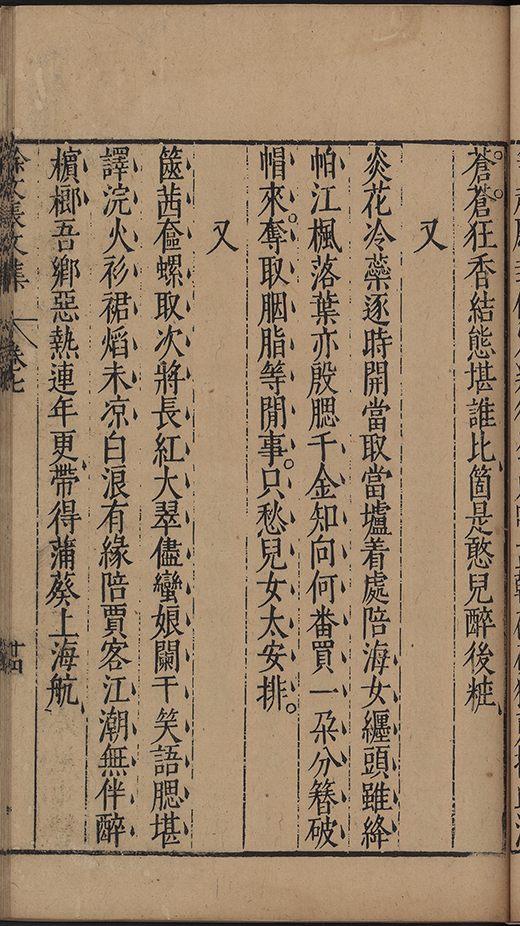 蒼蒼狂香結態堪誰比箇是憨兒醉後粧
又
炎花冷蘂逐時開當取當壚着處陪海女纏頭雖絳
帕江楓落葉亦殷腮千金知向何畨買一朶分簪破
帽來奪取胭脂等閒事只愁兒女太安排
又
茜螺取次將長紅大翠儘蠻娘闌干笑語腮堪
譯浣火衫裙熖未凉白浪有緣陪賈客江潮無伴醉
檳榔吾鄉惡熱連年更帶得蒲葵上海航
徐文長文集 卷七 廿四